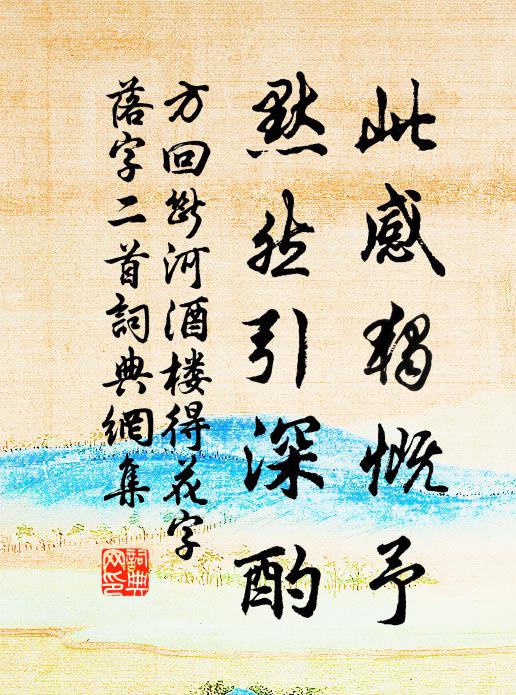 此感独慨予
默然引深酌
方回断河酒楼得花字
落字二首詞典網集
詞典網印